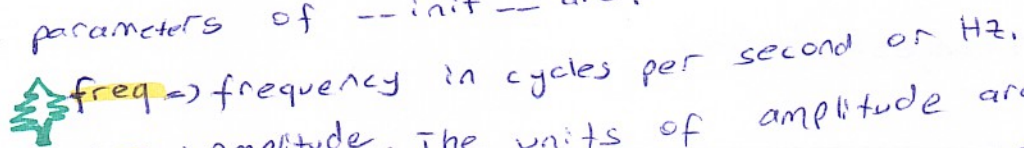 parameters of __init__
freq => frequency in cycles per second or Hz.
amplitude. The units of amplitude are